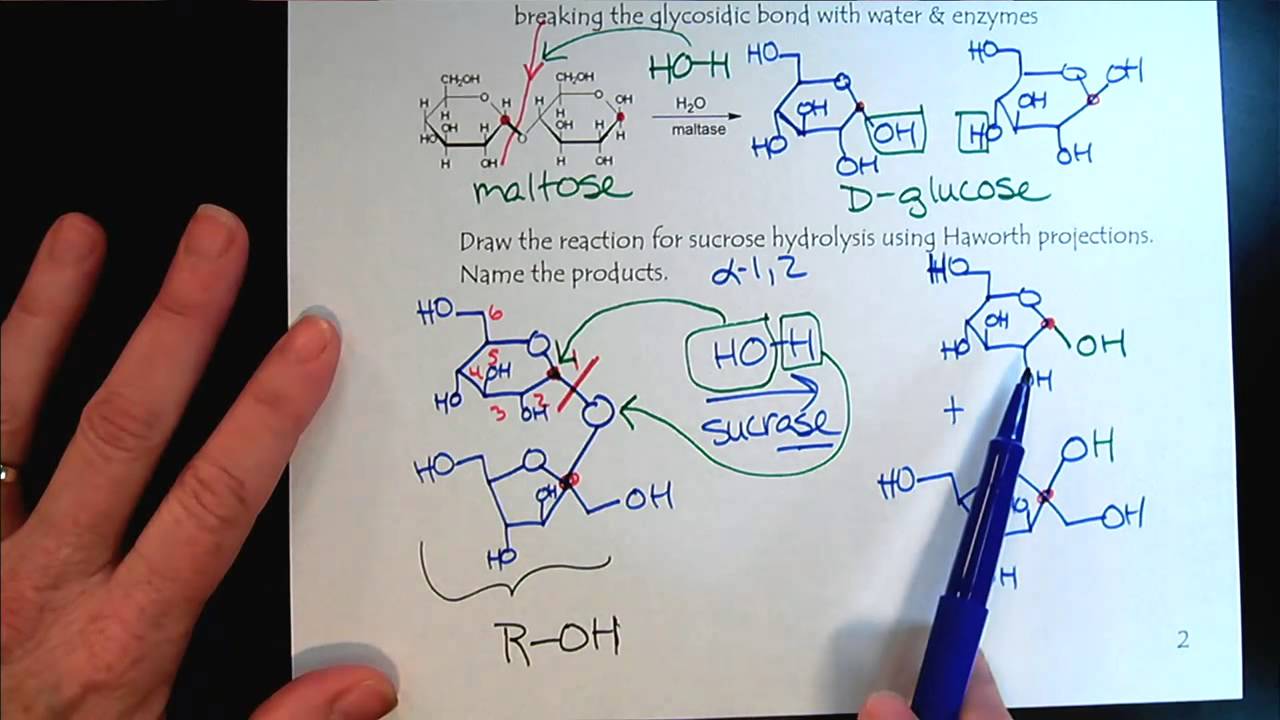 breaking the glycosidic bond with water & enzymes
HO-H
HO
HO
OH
CH₂OH
CH₂OH
O
O
O
H
H
H
H
OH
H₂O
OH
OH
OH
H
H
OH
H
OH
H
H
HO
H
O
maltase
HO
OH
HO
H
OH
H
OH
OH
OH
maltose
D-glucose
Draw the reaction for sucrose hydrolysis using Haworth projections.
Name the products.
α-1,2
HO
HO
6
O
O
5
OH
4
1
HO-H
OH
HO
OH
HO
3
OH
2
O
H
sucrase
+
HO
O
OH
OH
OH
HO
OH
HO
O
H
R-OH
2